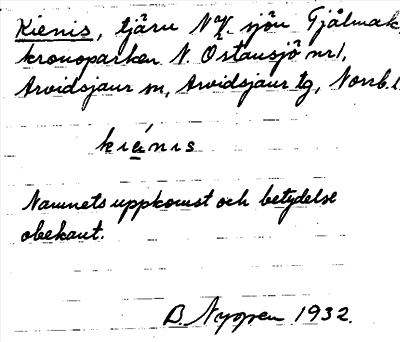 Kienis, tjärn NV. sjön Gjålmak
kronoparken N. Ostansjö nr 1,
Arvidsjaur sn, Arvidsjaur tg, Norrb. l.
kiénis
Namnets uppkomst och betydelse
obekant.
B. Nyppen 1932.